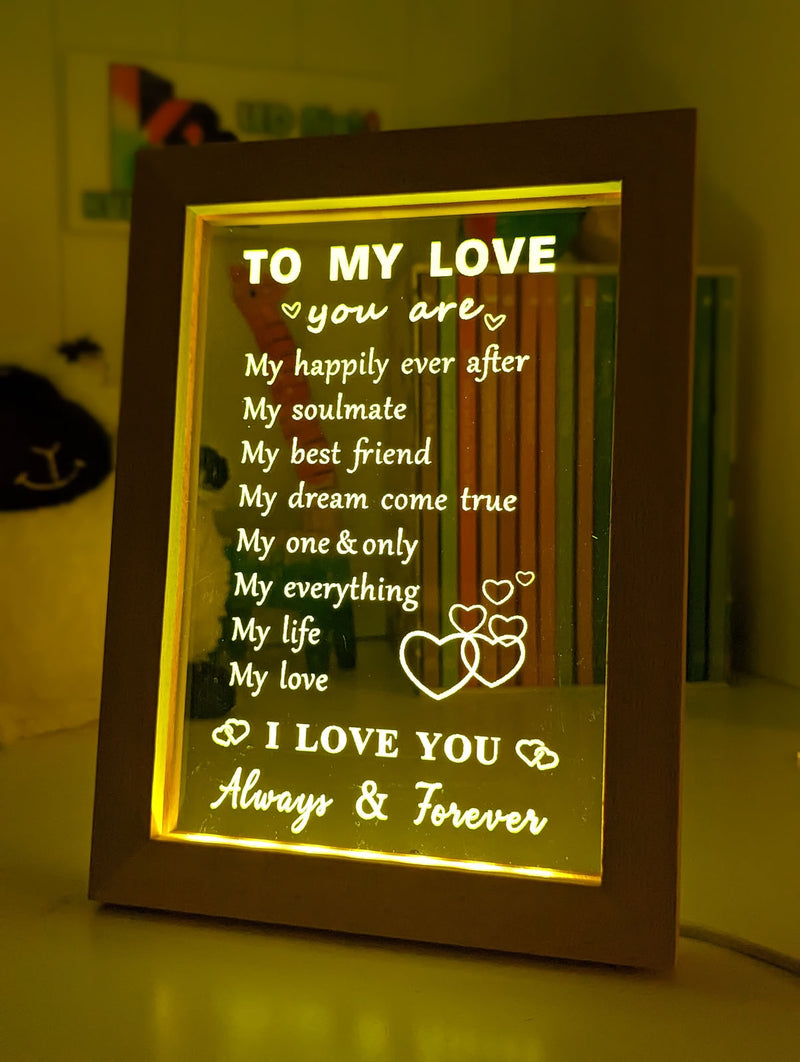 TO MY LOVE
you are
My happily ever after
My soulmate
My best friend
My dream come true
My one & only
My everything
My life
My love
I LOVE YOU
Always & Forever